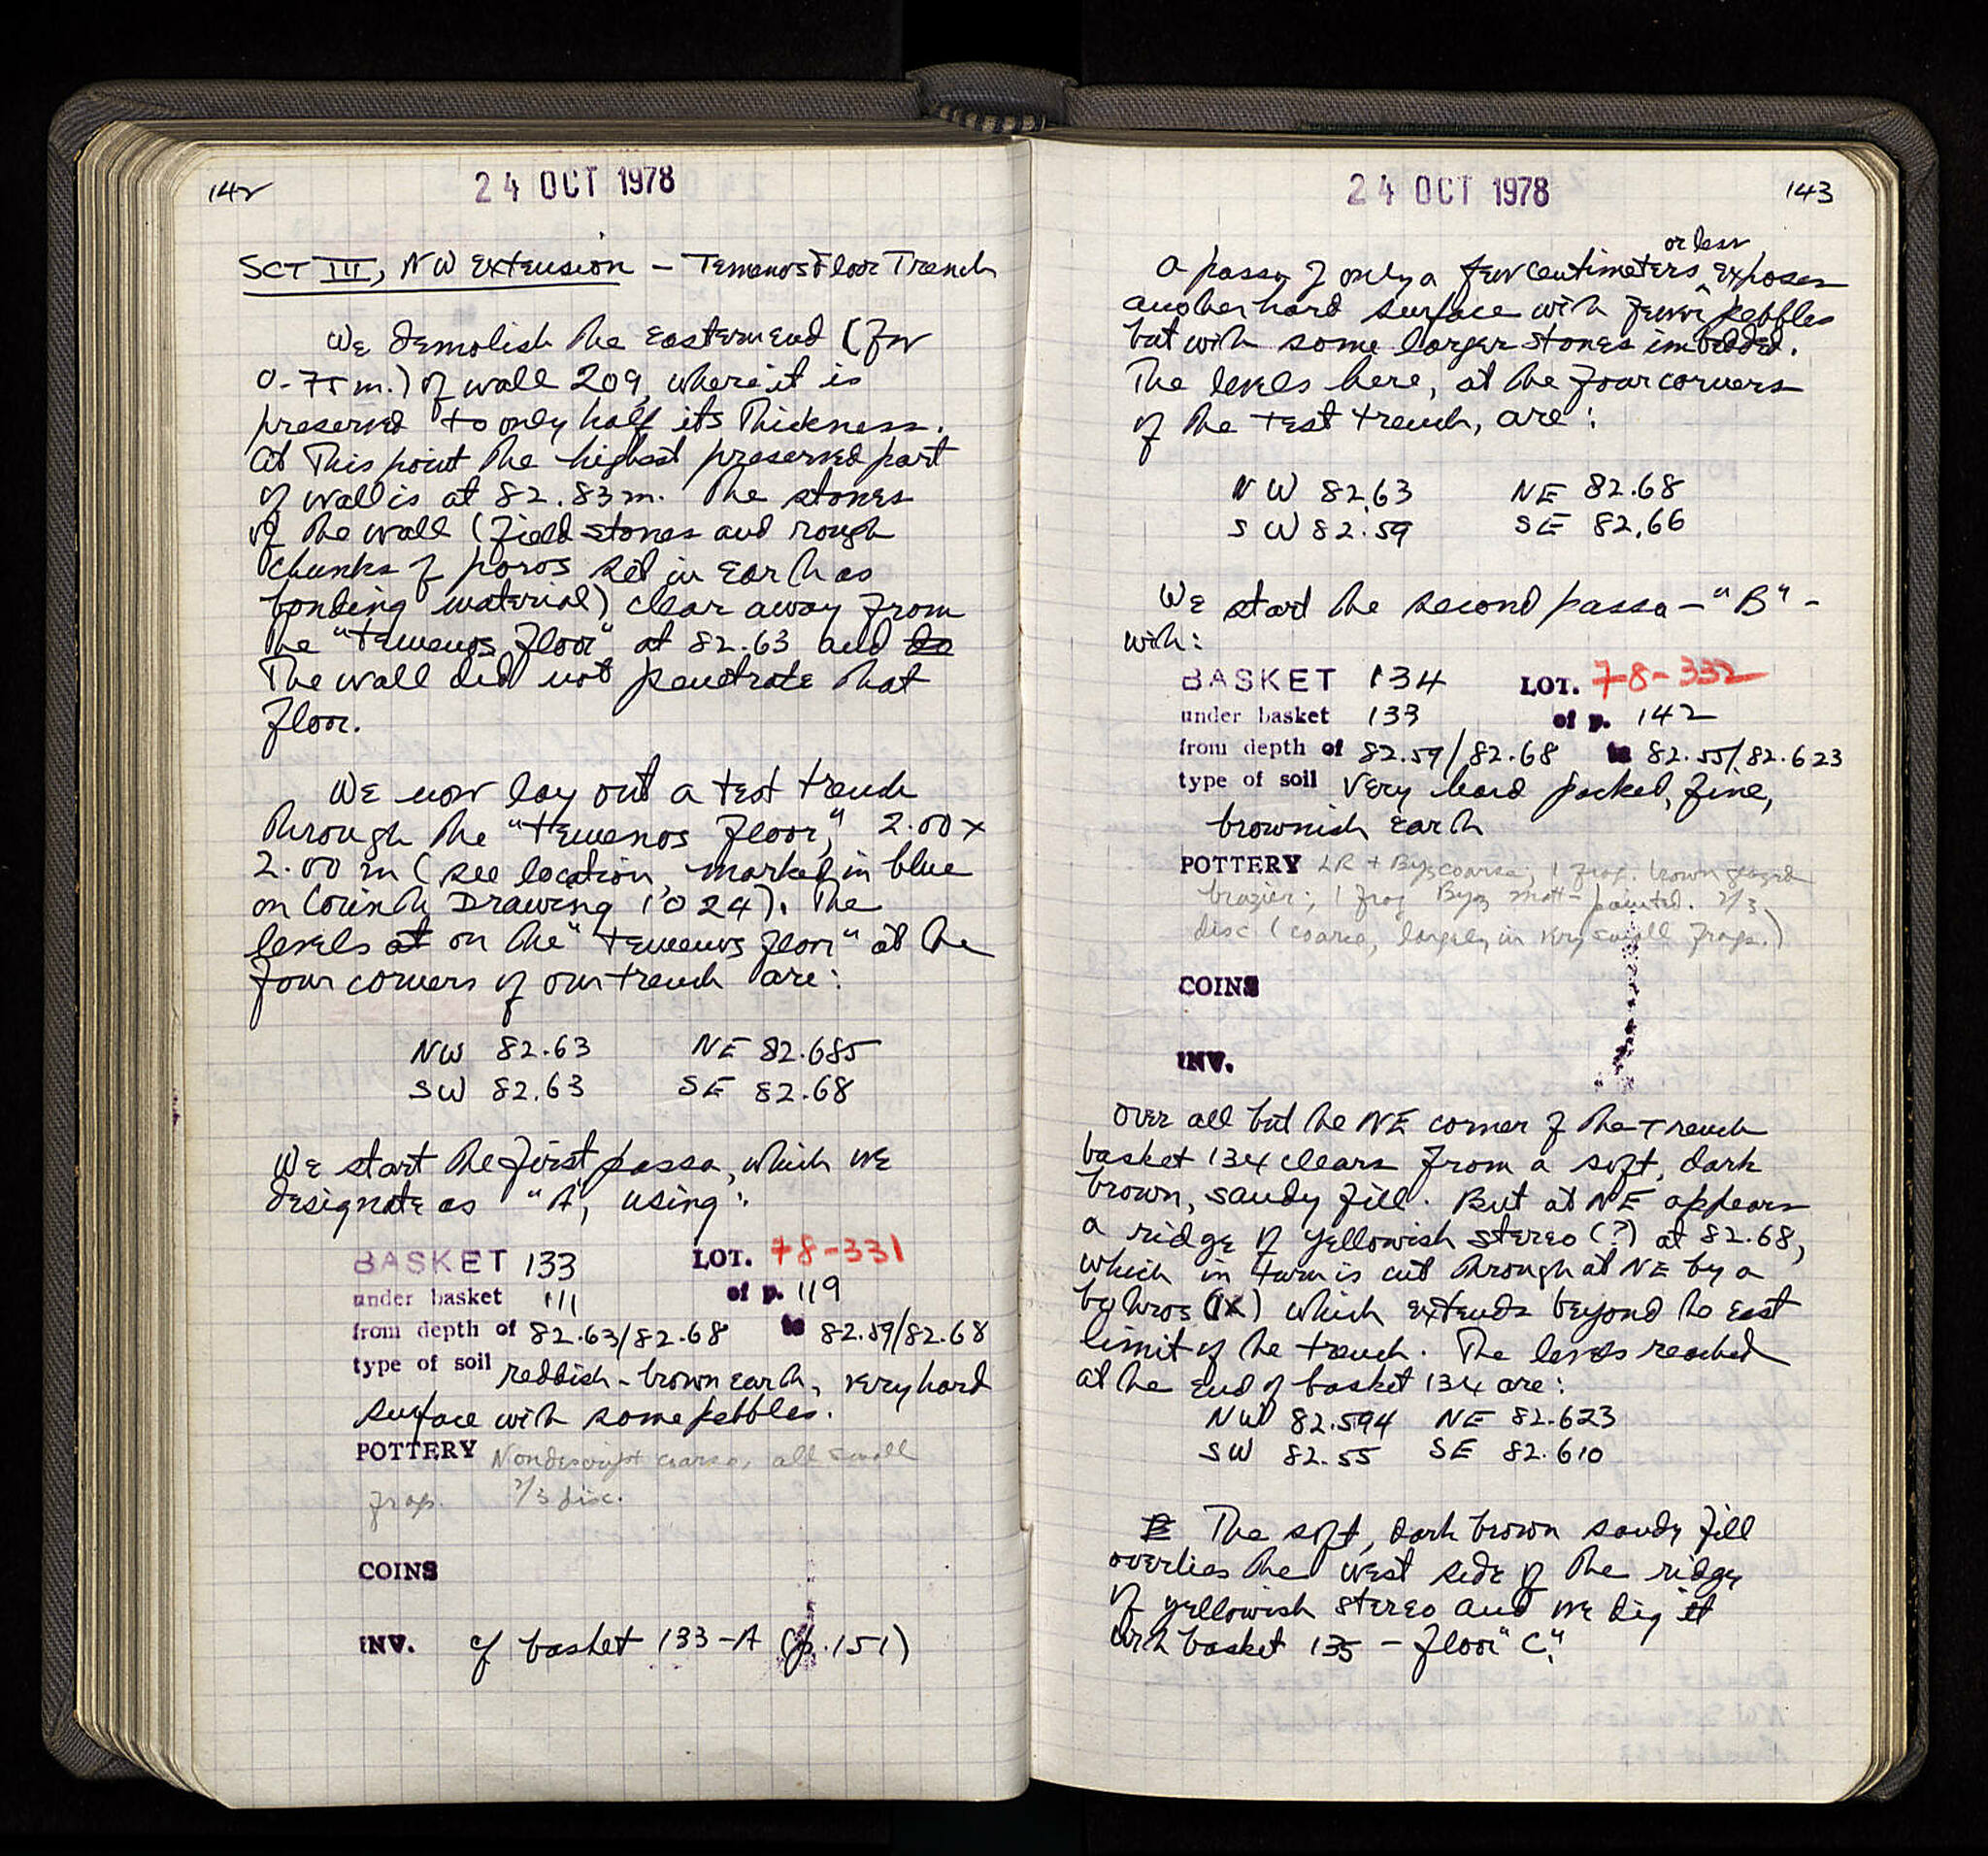 142
24 OCT 1978
SCT III, NW Extension – Temenos Floor Trench
We demolish the eastern end (for
0.75 m.) of wall 209, where it is
preserved to only half its thickness.
At this point the highest preserved part
of wall is at 82.83 m. The stones
of the wall (field stones and rough
chunks of poros set in earth as
bonding material) clear away from
the "temenos floor" at 82.63 and
The wall did not penetrate that
floor.
We now lay out a test trench
through the "temenos floor," 2.00 x
2.00 m (see location, marked in blue
on Corinth Drawing 1024). The
levels at on the "temenos floor" at the
four corners of our trench are:
NW 82.63 NE 82.685
SW 82.63 SE 82.68
We start the first passa, which we
designate as "A", using:
BASKET 133 LOT. 78-331
under basket 111 of p. 119
from depth of 82.63/82.68 to 82.59/82.68
type of soil reddish-brown earth, very hard
surface with some pebbles.
POTTERY Nondescript coarse, all small
frags. 2/3 disc.
COINS
INV. cf basket 133-A (p. 151)
24 OCT 1978
143
A passa of only a few centimeters or less exposes
another hard surface with fewer pebbles
but with some larger stones imbedded.
The levels here, at the four corners
of the test trench, are:
NW 82.63 NE 82.68
SW 82.59 SE 82.66
We start the second passa – "B" –
with:
BASKET 134 LOT. 78-332
under basket 133 of p. 142
from depth of 82.59/82.68 to 82.55/82.623
type of soil very hard packed, fine,
brownish earth
POTTERY LR + Byz coarse; 1 frag. brown glazed
brazier; 1 frag Byz matt-painted. 2/3
disc (coarse, largely in very small frags.)
COINS
INV.
Over all but the NE corner of the trench
basket 134 clears from a soft, dark
brown, sandy fill. But at NE appears
a ridge of yellowish stereo (?) at 82.68,
which in turn is cut through at NE by a
bothros (IX) which extends beyond the east
limit of the trench. The levels reached
at the end of basket 134 are:
NW 82.594 NE 82.623
SW 82.55 SE 82.610
The soft, dark brown sandy fill
overlies the west side of the ridge
of yellowish stereo and we dig it
with basket 135 – floor "C."